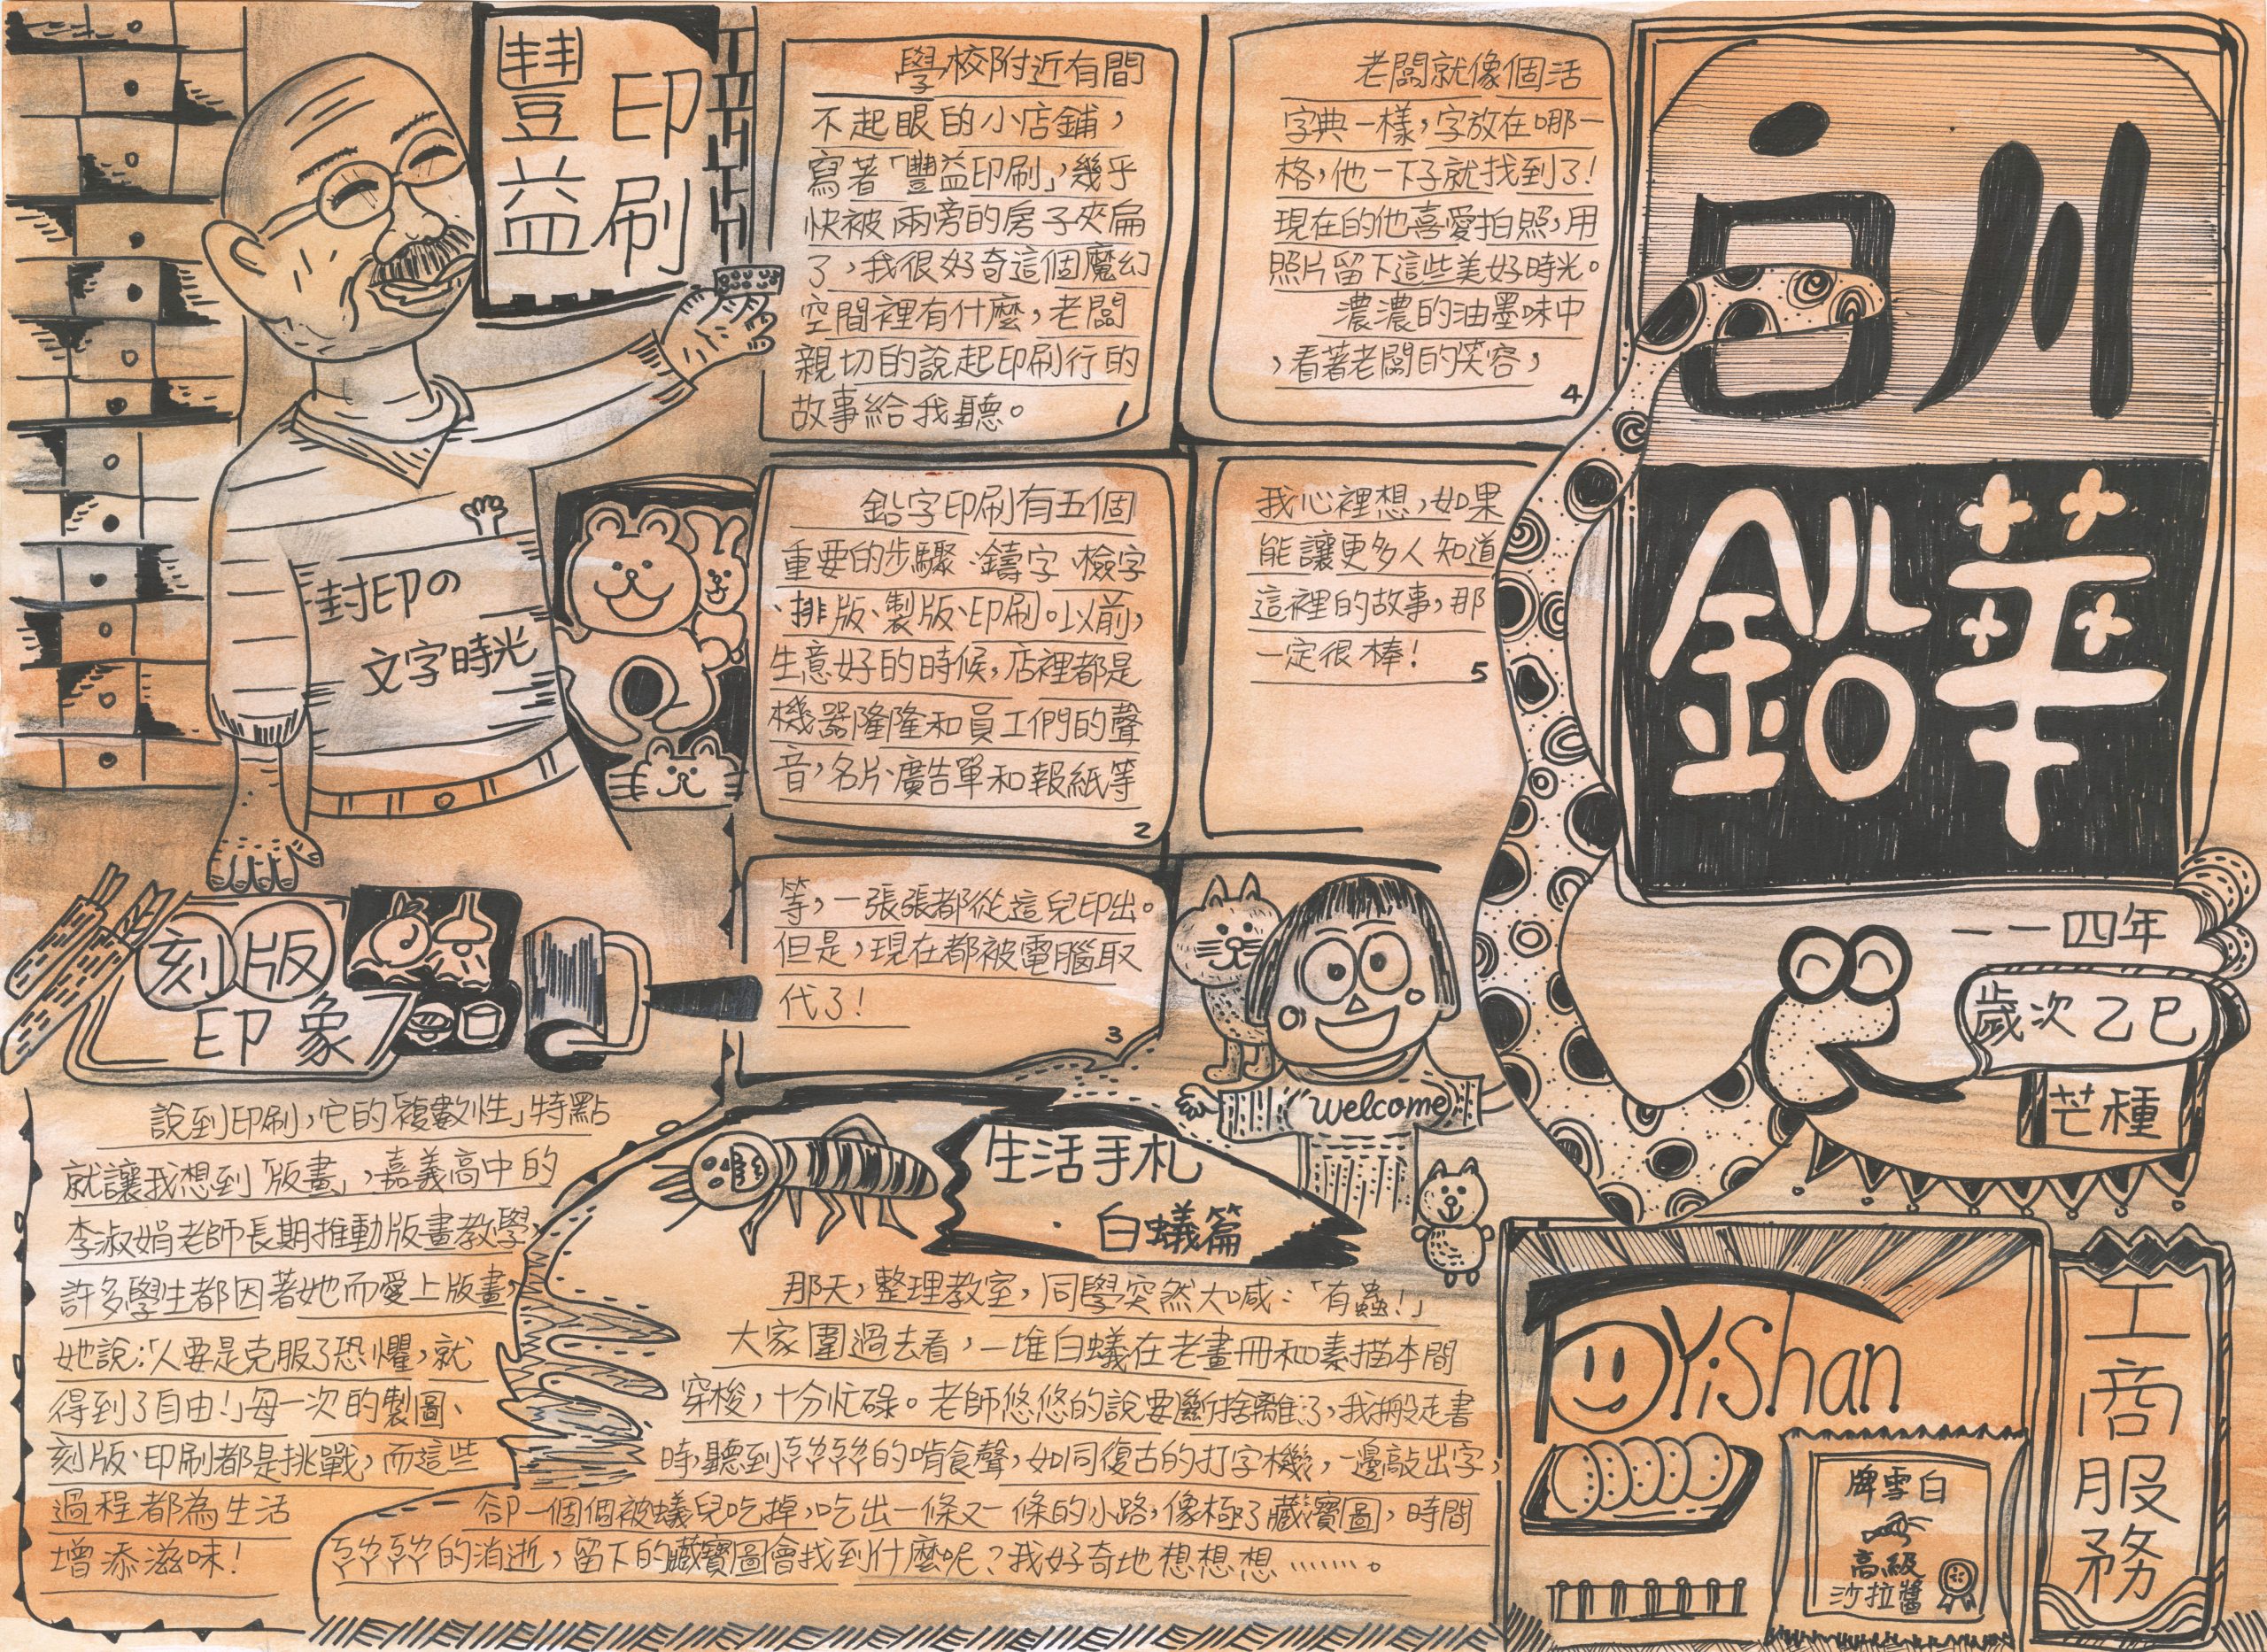 川
言
鉛華
一一四年
歲次乙巳
芒種
豐益
印刷
封印の
文字時光
學校附近有間
不起眼的小店鋪,
寫著「豐益印刷」,幾乎
快被兩旁的房子夾扁
了,我很好奇這個魔幻
空間裡有什麼,老闆
親切的說起印刷行的
故事給我聽。
1
鉛字印刷有五個
重要的步驟、鑄字、檢字
、排版、製版、印刷。以前,
生意好的時候,店裡都是
機器隆隆和員工們的聲
音,名片、廣告單和報紙等
2
等,一張張都從這兒印出。
但是,現在都被電腦取
代了!
3
老闆就像個活
字典一樣,字放在哪一
格,他一下子就找到了!
現在的他喜愛拍照,用
照片留下這些美好時光。
濃濃的油墨味中
,看著老闆的笑容,
4
我心裡想,如果
能讓更多人知道
這裡的故事,那
一定很棒!
5
刻版
印象
說到印刷,它的「複數性」特點
就讓我想到「版畫」,嘉義高中的
李淑娟老師長期推動版畫教學,
許多學生都因著她而愛上版畫,
她說:「人要是克服了恐懼,就
得到了自由!」每一次的製圖、
刻版、印刷都是挑戰,而這些
過程都為生活
增添滋味!
welcome
生活手札
·白蟻篇
那天,整理教室,同學突然大喊:「有蟲!」
大家圍過去看,一堆白蟻在老畫冊和素描本間
穿梭,十分忙碌。老師悠悠的說要斷捨離了,我搬走書
時,聽到ㄎㄘㄎㄘ的啃食聲,如同復古的打字機,一邊敲出字,
卻一個個被蟻兒吃掉,吃出一條又一條的小路,像極了藏寶圖,時間
ㄎㄘㄎㄘ的消逝,留下的藏寶圖會找到什麼呢?我好奇地想想想………。
YiShan
牌雪白
高級
沙拉醬
工商服務